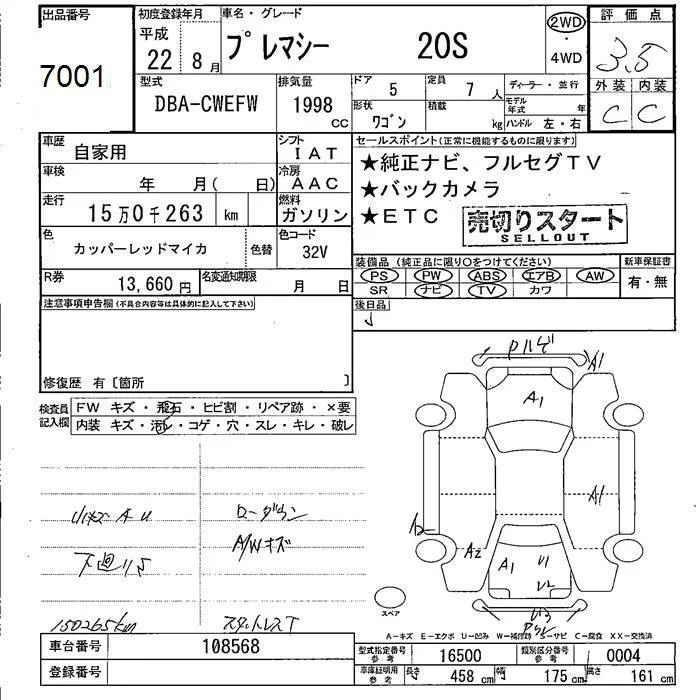 出品番号 7001
初度登録年月 平成 22 8月
車名・グレード プレマシー 20S
2WD・4WD
評価点 3.5
外装 内装
C C
型式 DBA-CWEFW
排気量 1998 CC
ドア 5 定員 7人 ディーラー・並行
形状 ワゴン 積載 kg モデル年式 年
ハンドル 左・右
車歴 自家用
シフト IAT
車検 年 月( 日)
冷房 AAC
走行 15万0千263 km
燃料 ガソリン
色 カッパーレッドマイカ 色替
色コード 32V
R券 13,660円 名変通知期限 月 日
セールスポイント(正常に機能するものに限ります)
★純正ナビ、フルセグTV
★バックカメラ
★ETC
売切りスタート
SELLOUT
装備品(純正品に限り○をつけてください) 新車保証書
PS PW ABS エアB AW 有・無
SR ナビ TV カワ
後日品
注意事項申告欄(不具合内容等は具体的に記入して下さい)
修復歴 有〔箇所 〕
検査員記入欄 FW キズ・飛石・ヒビ割・リペア跡・×要
内装 キズ・汚レ・コゲ・穴・スレ・キレ・破レ
小キズ A U ローダウン
下廻りS A/Wキズ
150265km スタットレスT
A1
A1
A1
A2
A2
A1 U1
U2
U3
スペア
A-キズ E-エクボ U-凹み W-補修跡 S-サビ C-腐食 XX-交換済
車台番号 108568
登録番号
型式指定番号 参考 16500 類別区分番号 参考 0004
車庫証明用 参考 長さ 458 cm 幅 175 cm 高さ 161 cm